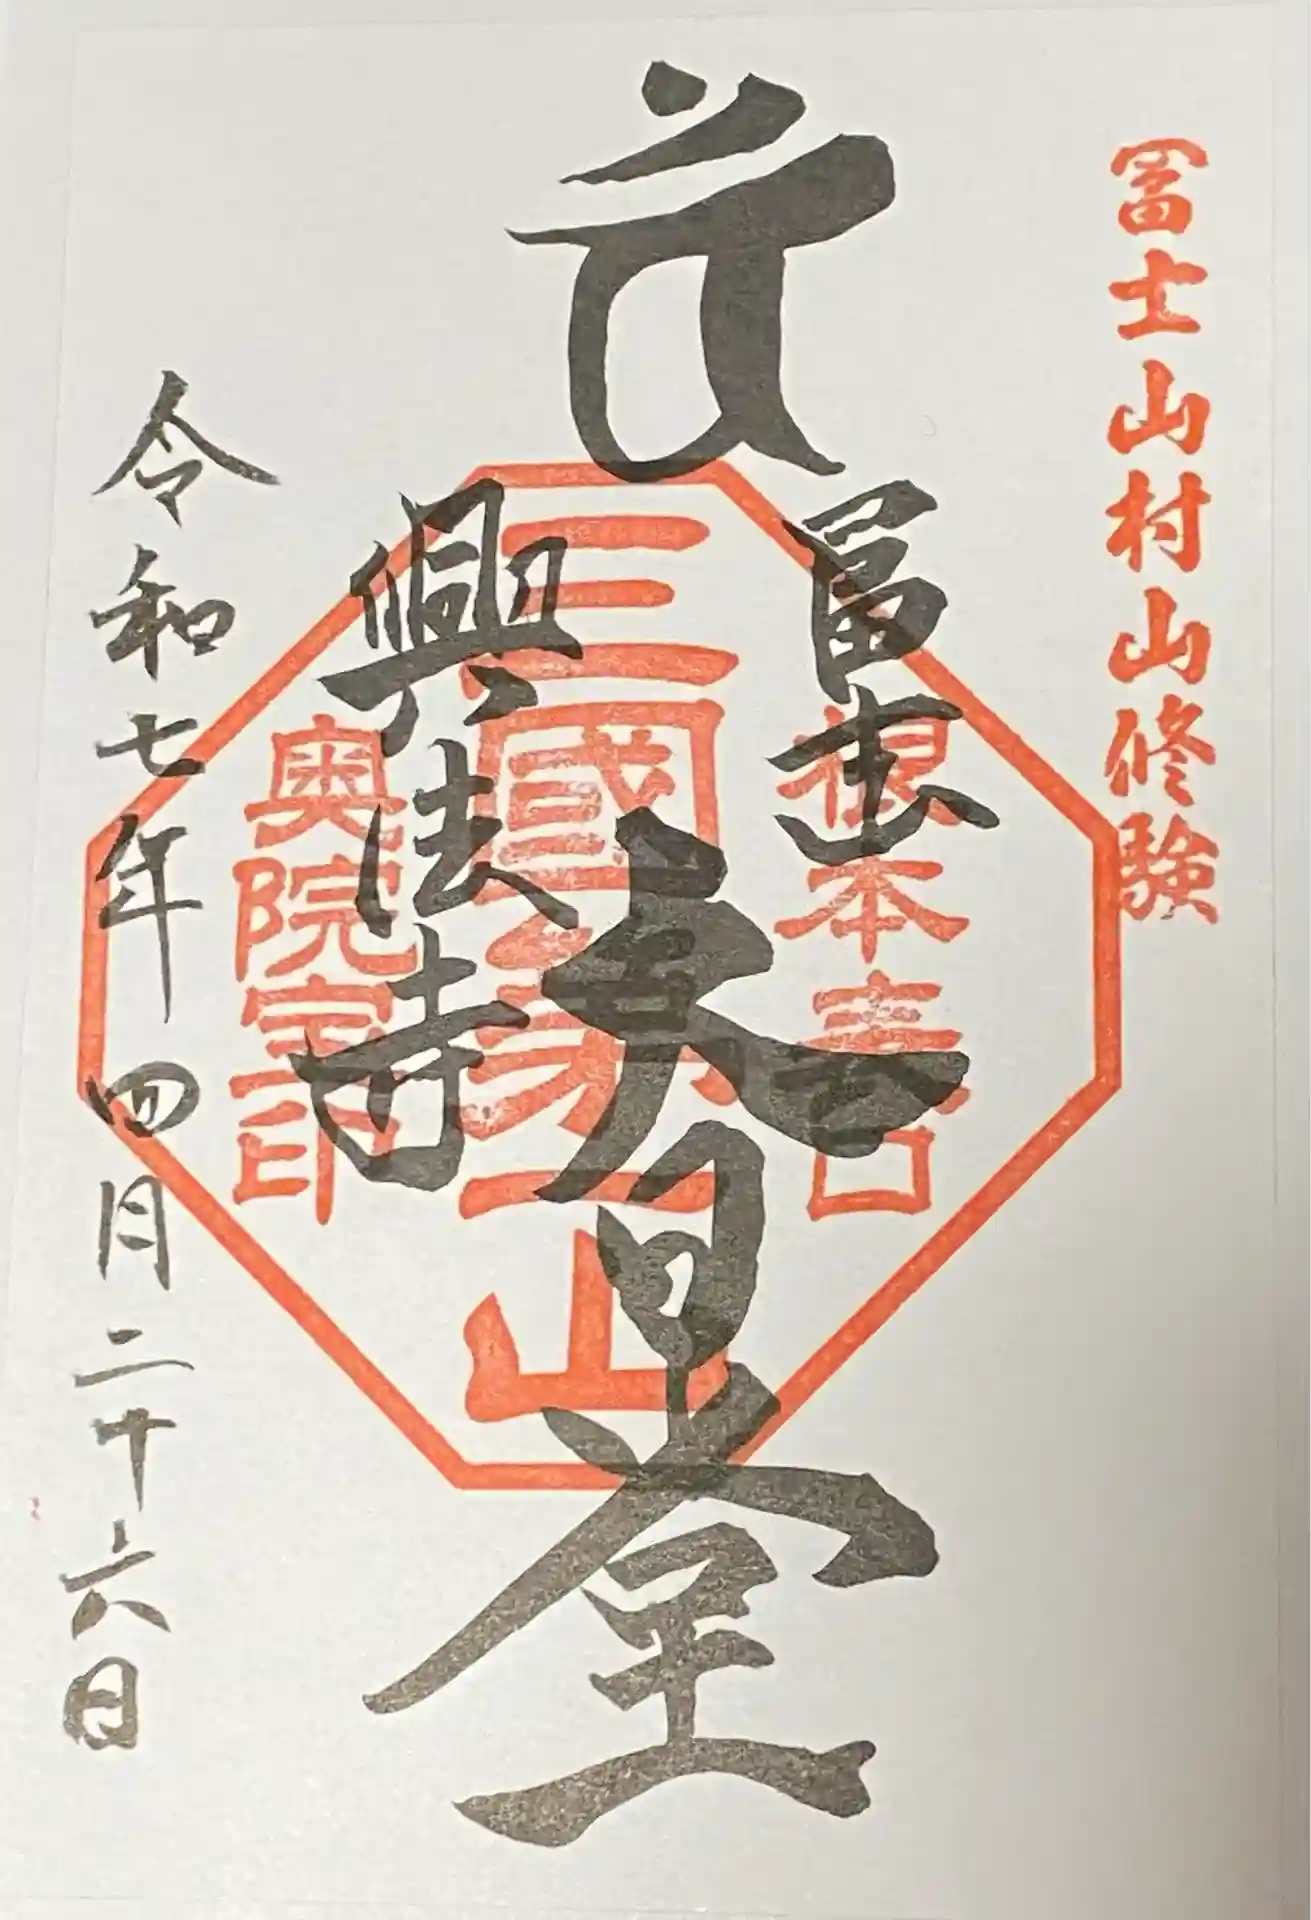 冨士山村山修験
冨志
根本表口
大日堂
三國第一山
興法寺
奥院宝印
令和七年四月二十六日